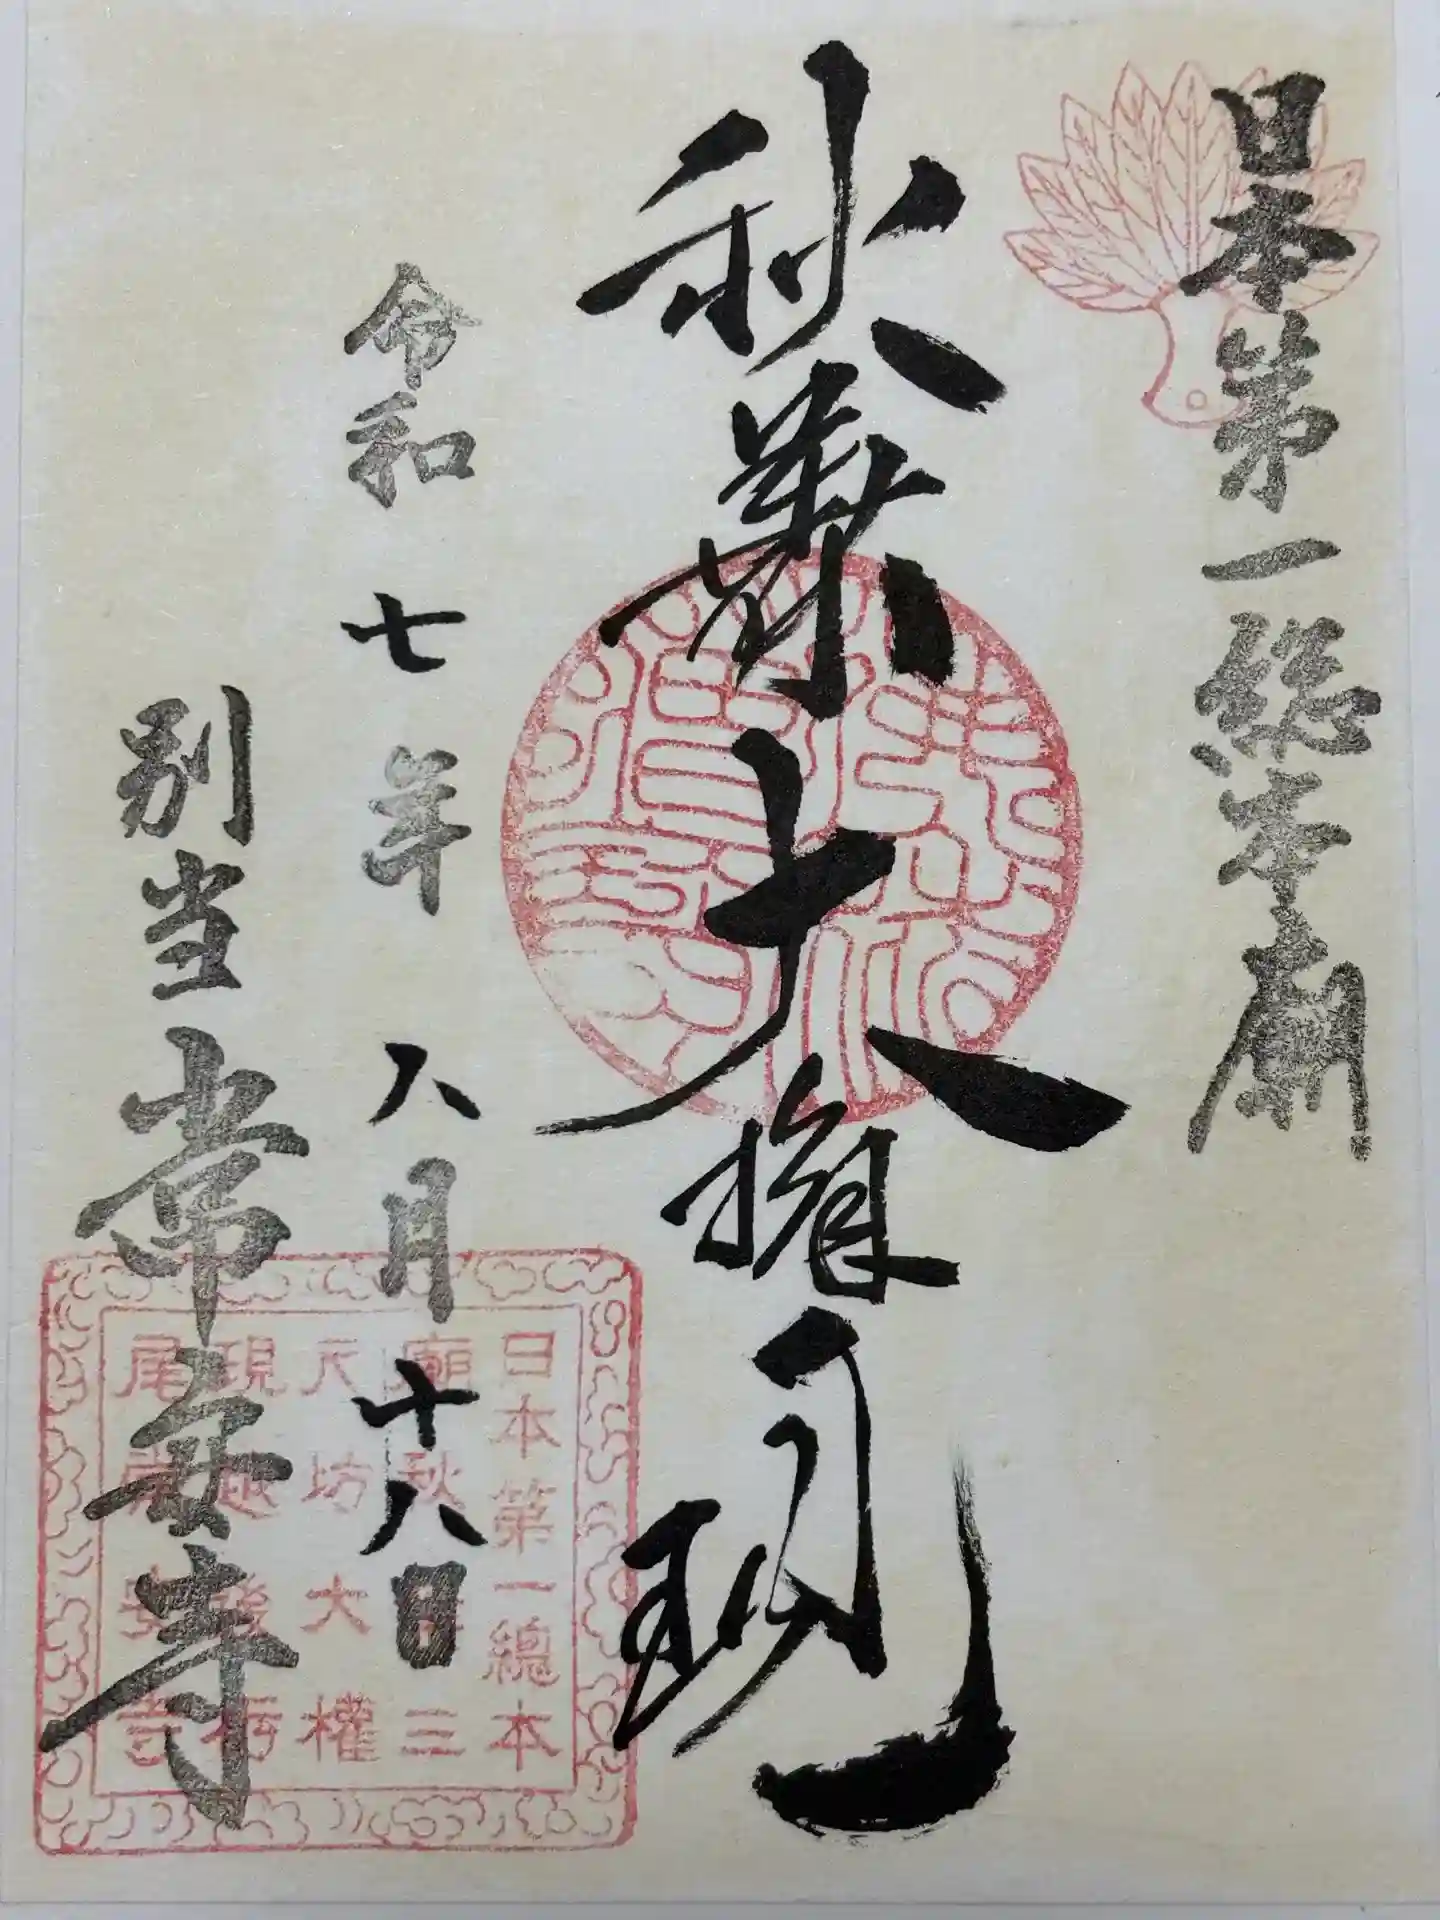 日本第一総本廟
秋葉大権現
令和七年八月十八日
別当常安寺
日本第一總本
廟秋葉三
尺坊大權
現越後栃
尾常安寺